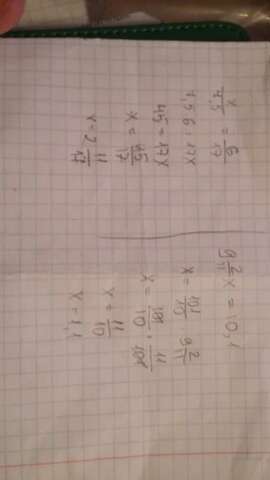 x/7,5 = 6/17
7,5·6 = 17x
45 = 17x
x = 45/17
x = 2 11/17
9 2/11 x = 10,1
x = 101/10 9 2/11
x = 101/10 · 11/101
x = 11/10
x = 1,1